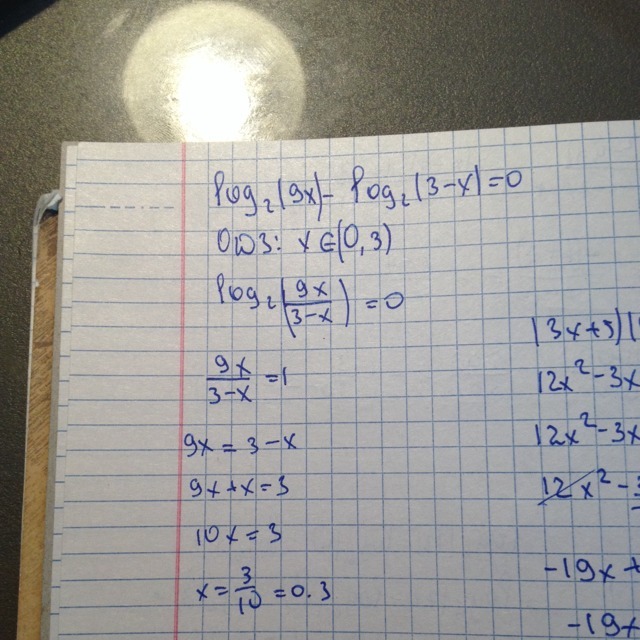 log₂(9x) - log₂(3-x)=0
ОДЗ: x∈(0,3)
log₂(9x/(3-x)) = 0
9x/(3-x) = 1
9x = 3 - x
9x+x=3
10x=3
x=3/10=0.3
(3x+5)(
12x²-3x
12x²-3x
12x²-3
-19x+
-19x